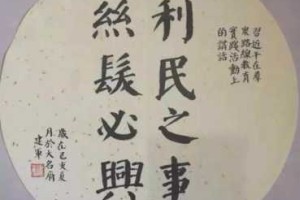 利民之事
絲髮必興
習近平在羣
衆路線教育
實踐活動上
的講話
歲在己亥夏
月於大名府
建軍